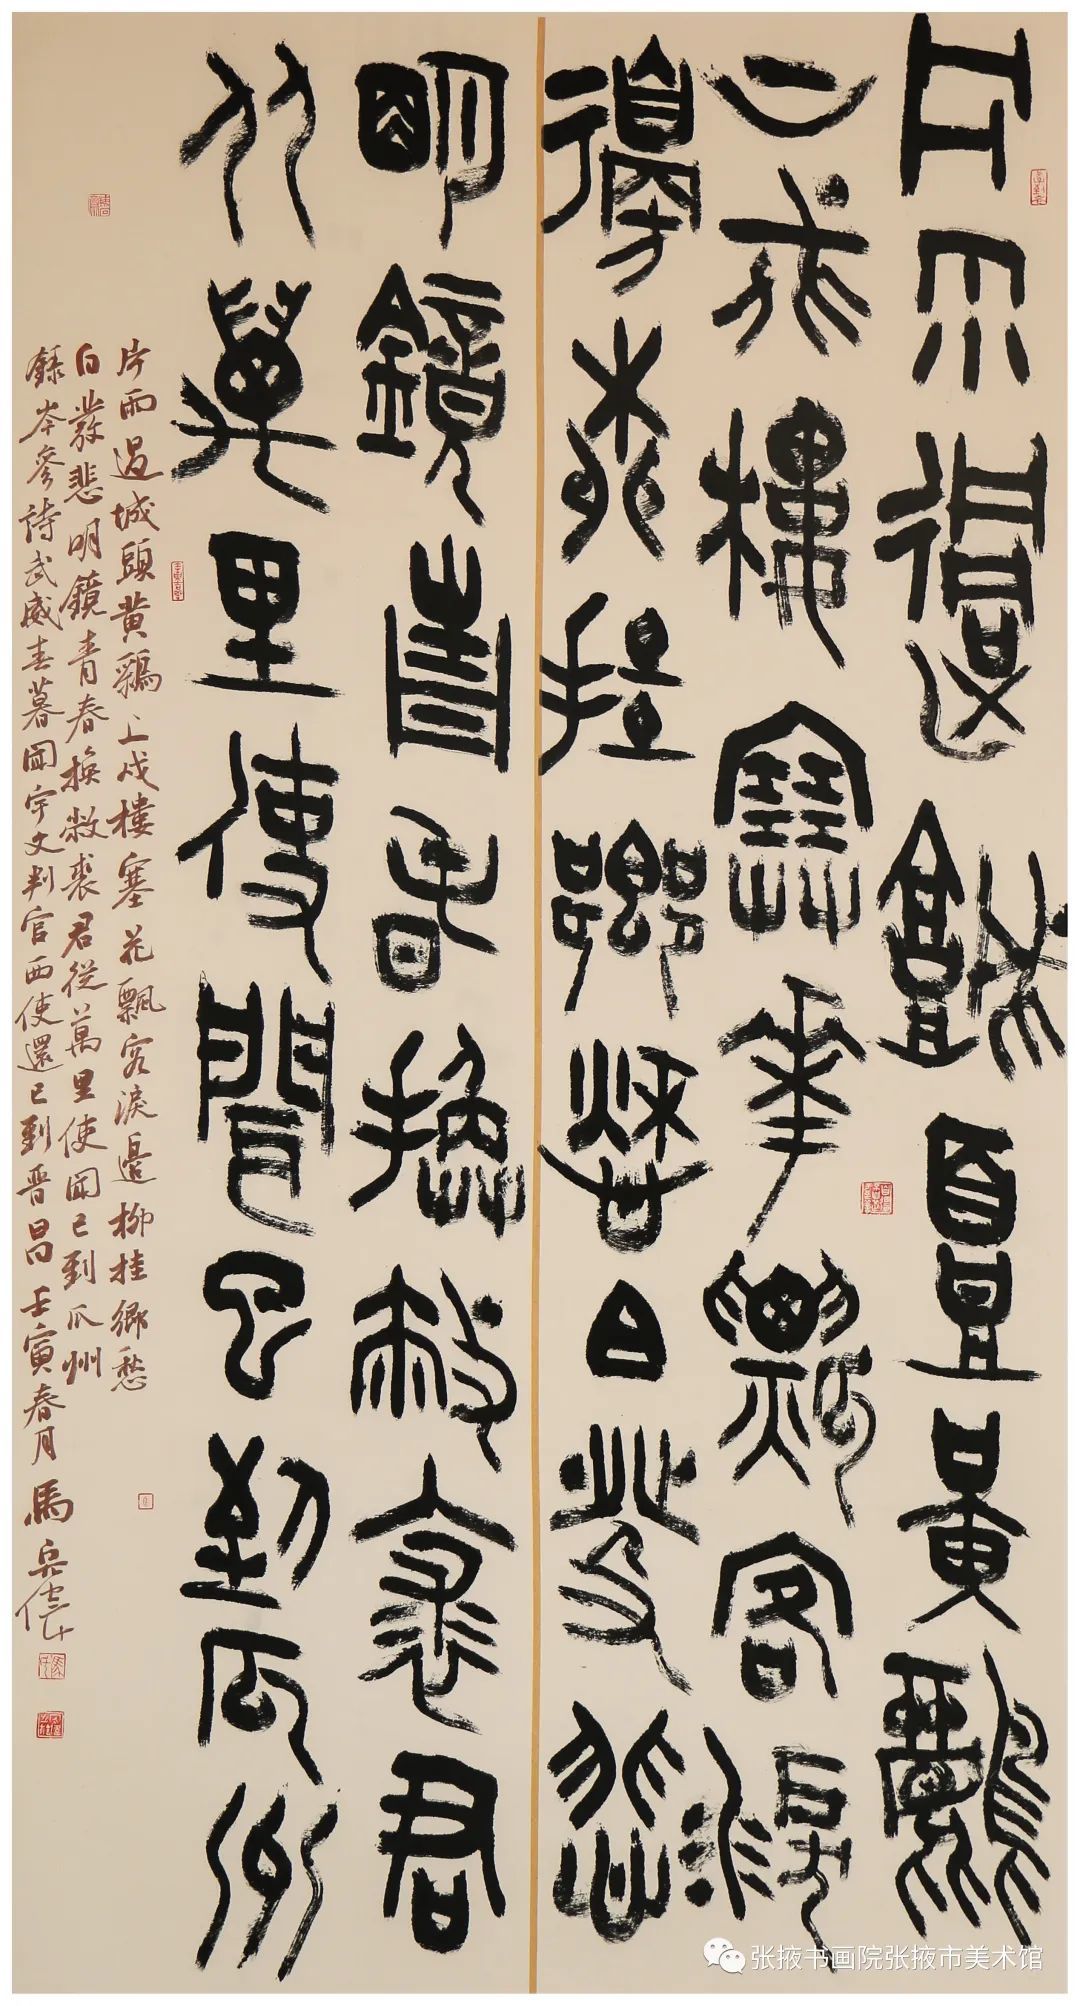 片雨過城頭黃鸝
上戍樓塞華飄客淚
邊柳挂鄉愁白發悲
明鏡青春換敝裘君
從萬里使聞已到瓜州
片雨過城頭黃鸝上戍樓塞花飄客淚邊柳挂鄉愁
白發悲明鏡青春換敝裘君從萬里使聞已到瓜州
錄岑參詩武威春暮聞宇文判官西使還已到晉昌壬寅春月馬
张掖书画院张掖市美术馆